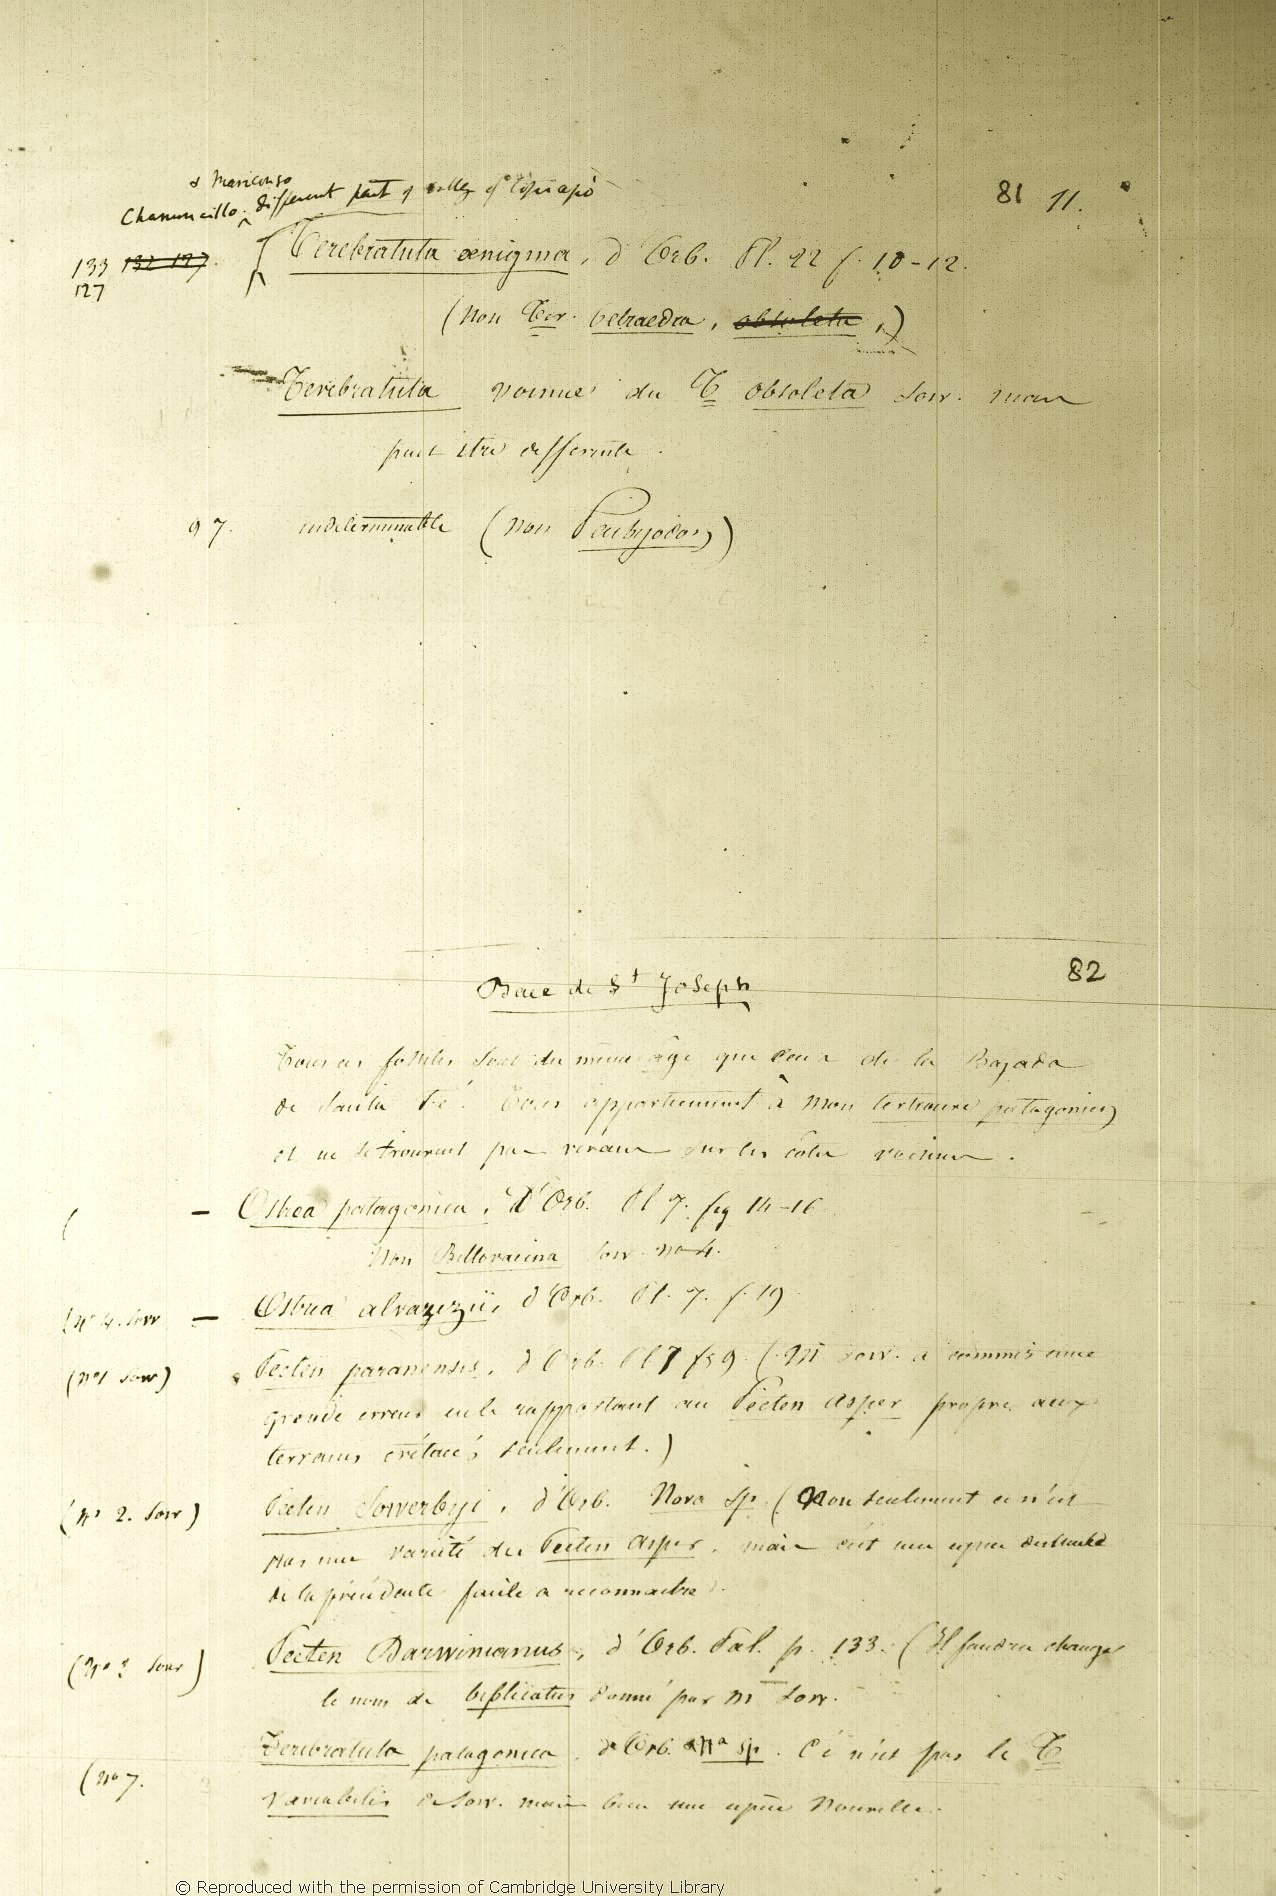 & Maricongo
Chanuncillo. different part of valley of Copiapò
81 11.
133 132 127. Terebratula ænigma, d'Orb. Pl. 22 f. 10-12.
127
(Non Ter. tetraedra, obsoleta,)
Terebratula voisine du T obsoleta Sow. mais
peut etre differente.
97. indeterminable (Non )
82
Baie de St Joseph
Tous ces fossiles sont du même âge que ceux de la Bajada
de Santa Fé. Tous appartiennent à mon tertiaire patagonien,
et ne se trouvent pas vivans sur les côtes voisines.
( — Ostrea patagonica, D'Orb. Pl 7. fig 14-16
Non Bellovacina Sow. no 4.
(No 4. Sow — Ostrea alvarezii, d'Orb. Pl. 7. f. 19
(No 1 Sow) Pecten paranensis, d'Orb. Pl 7 f 9 (Mr Sow. a commis une
grande erreur en le rapportant au Pecten asper propre aux
terrains crétacés seulement.)
(No 2. Sow) Pecten Sowerbyi, d'Orb. Nova sp. (Non seulement ce n'est
pas une variété du Pecten asper, mais c'est une espece distincte
de la précédente facile a reconnaitre).
(No 3 Sow) Pecten Darwinianus, d'Orb. Pal. p. 133. (Il faudra changer
le nom de biplicatus donné par Mr Sow.
(No 7. Terebratula patagonica, d'Orb. Na sp. Ce n'est pas le T
variabilis de Sow. mais bien une espèce nouvelle.
© Reproduced with the permission of Cambridge University Library